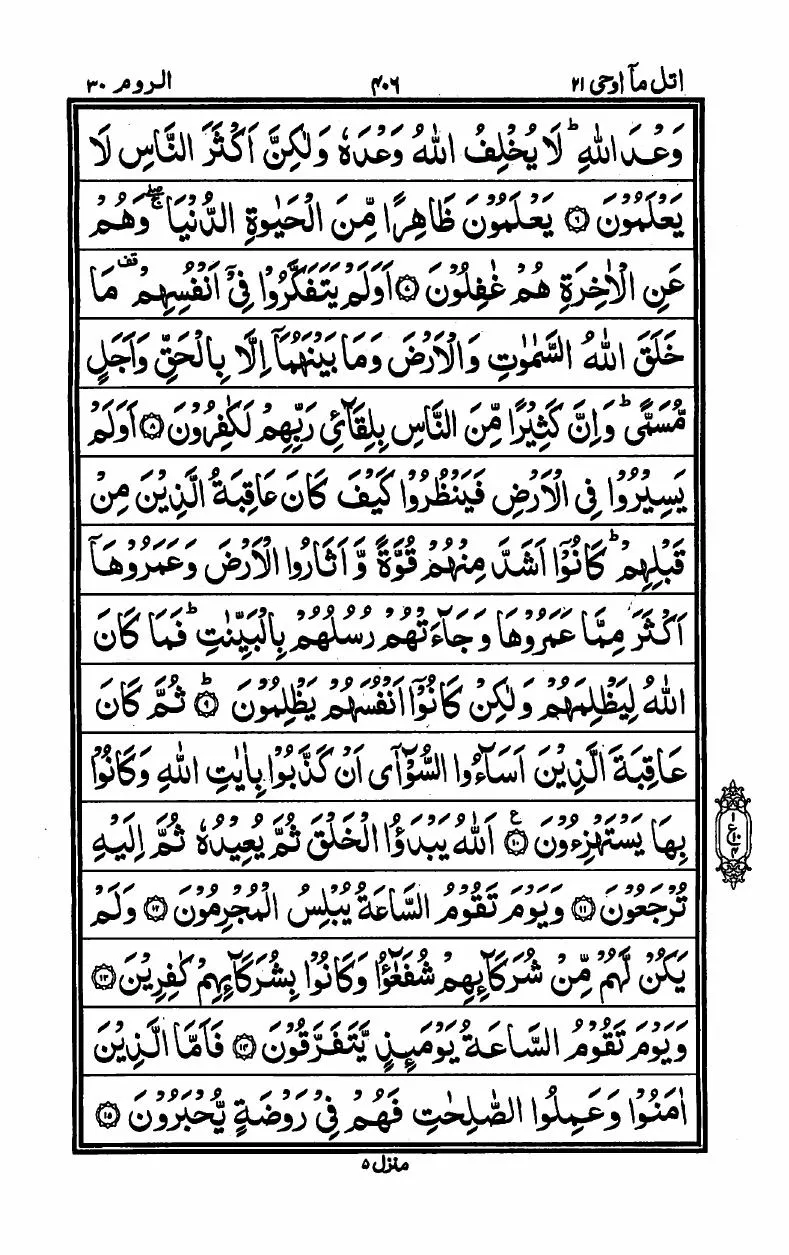 اتل مآ اوحی ۲۱ ۴۰۶ الروم ۳۰
وَعْدَ اللّٰهِ ؕ لَا يُخْلِفُ اللّٰهُ وَعْدَهٗ وَلٰكِنَّ اَكْثَرَ النَّاسِ لَا
يَعْلَمُوْنَ ۶ يَعْلَمُوْنَ ظَاهِرًا مِّنَ الْحَيٰوةِ الدُّنْيَا ۖۚ وَهُمْ
عَنِ الْاٰخِرَةِ هُمْ غٰفِلُوْنَ ۷ اَوَلَمْ يَتَفَكَّرُوْا فِيْۤ اَنْفُسِهِمْ قف مَا
خَلَقَ اللّٰهُ السَّمٰوٰتِ وَالْاَرْضَ وَمَا بَيْنَهُمَاۤ اِلَّا بِالْحَقِّ وَاَجَلٍ
مُّسَمًّى ؕ وَاِنَّ كَثِيْرًا مِّنَ النَّاسِ بِلِقَآئِ رَبِّهِمْ لَكٰفِرُوْنَ ۸ اَوَلَمْ
يَسِيْرُوْا فِي الْاَرْضِ فَيَنْظُرُوْا كَيْفَ كَانَ عَاقِبَةُ الَّذِيْنَ مِنْ
قَبْلِهِمْ ؕ كَانُوْۤا اَشَدَّ مِنْهُمْ قُوَّةً وَّ اَثَارُوا الْاَرْضَ وَعَمَرُوْهَاۤ
اَكْثَرَ مِمَّا عَمَرُوْهَا وَجَآءَتْهُمْ رُسُلُهُمْ بِالْبَيِّنٰتِ ؕ فَمَا كَانَ
اللّٰهُ لِيَظْلِمَهُمْ وَلٰكِنْ كَانُوْۤا اَنْفُسَهُمْ يَظْلِمُوْنَ ؕ ۹ ثُمَّ كَانَ
عَاقِبَةَ الَّذِيْنَ اَسَآءُوا السُّوْٓاٰۤى اَنْ كَذَّبُوْا بِاٰيٰتِ اللّٰهِ وَكَانُوْا
بِهَا يَسْتَهْزِءُوْنَ ع ۱۰ اَللّٰهُ يَبْدَؤُا الْخَلْقَ ثُمَّ يُعِيْدُهٗ ثُمَّ اِلَيْهِ
تُرْجَعُوْنَ ۱۱ وَيَوْمَ تَقُوْمُ السَّاعَةُ يُبْلِسُ الْمُجْرِمُوْنَ ۱۲ وَلَمْ
يَكُنْ لَّهُمْ مِّنْ شُرَكَآئِهِمْ شُفَعٰٓؤُا وَكَانُوْا بِشُرَكَآئِهِمْ كٰفِرِيْنَ ۱۳
وَيَوْمَ تَقُوْمُ السَّاعَةُ يَوْمَئِذٍ يَّتَفَرَّقُوْنَ ۱۴ فَاَمَّا الَّذِيْنَ
اٰمَنُوْا وَعَمِلُوا الصّٰلِحٰتِ فَهُمْ فِيْ رَوْضَةٍ يُّحْبَرُوْنَ ۱۵
منزل ۵